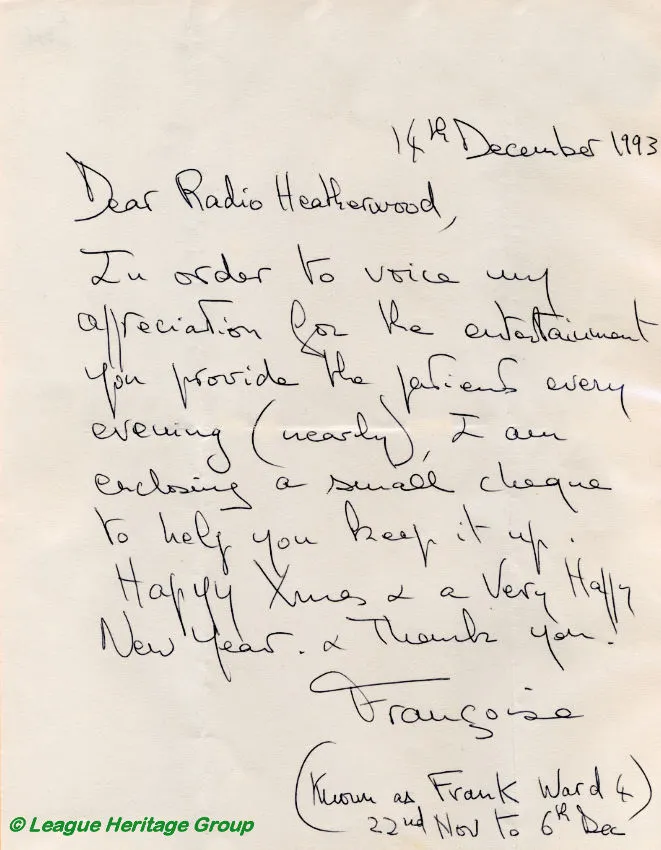 14th December 1993
Dear Radio Heatherwood,
In order to voice my
appreciation for the entertainment
you provide the patients every
evening (nearly), I am
enclosing a small cheque
to help you keep it up.
Happy Xmas & a Very Happy
New Year. & Thank you.
Françoise
(Known as Frank Ward 4
22nd Nov to 6th Dec)
© League Heritage Group